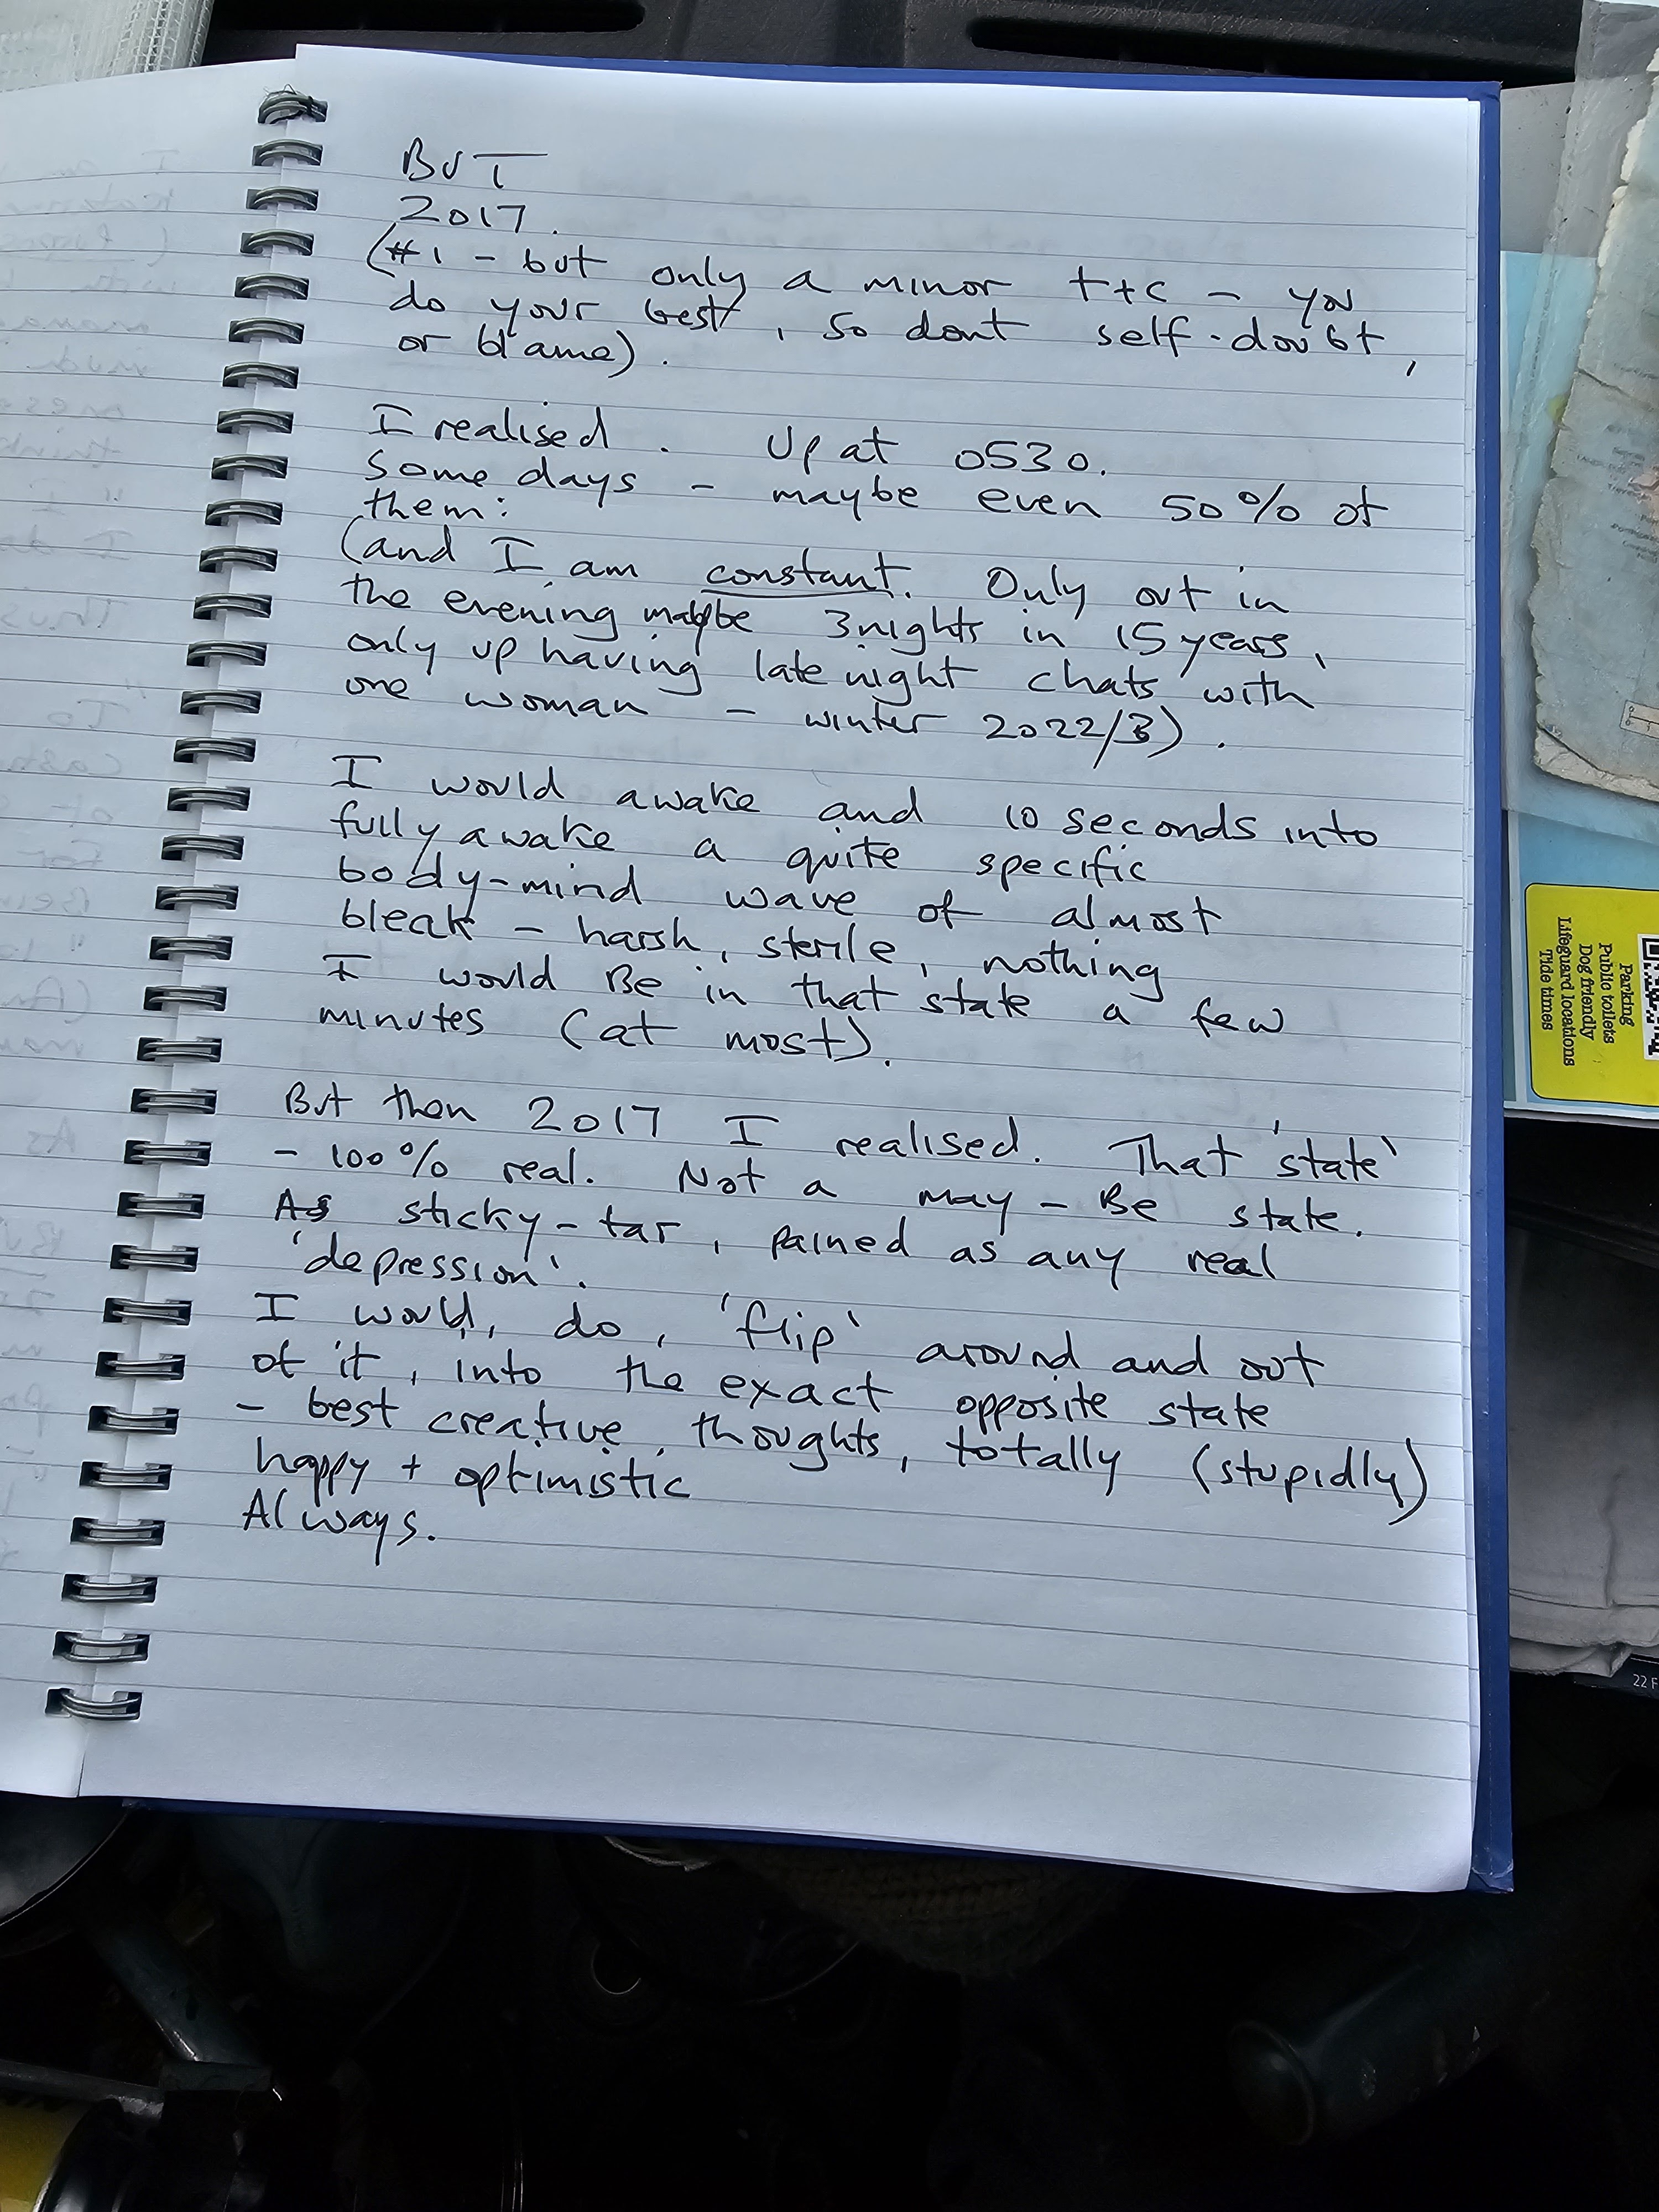 BUT
2017.
(#1 - but only a minor t+c - you
do your best, so dont self-doubt,
or blame).
I realised. Up at 0530.
Some days - maybe even 50% of
them:
(and I am constant. Only out in
the evening maybe 3 nights in 15 years,
only up having late night chats with
one woman - winter 2022/3).
I would awake and 10 seconds into
fully awake a quite specific
body-mind wave of almost
bleak - harsh, sterile, nothing
I would Be in that state a few
minutes (at most).
But then 2017 I realised. That 'state'
- 100% real. Not a may-Be state.
As sticky-tar, pained as any real
'depression'.
I would, do, 'flip' around and out
of it, into the exact opposite state
- best creative, thoughts, totally (stupidly)
happy + optimistic
Always.
Parking
Public toilets
Dog friendly
Lifeguard locations
Tide times
22 F